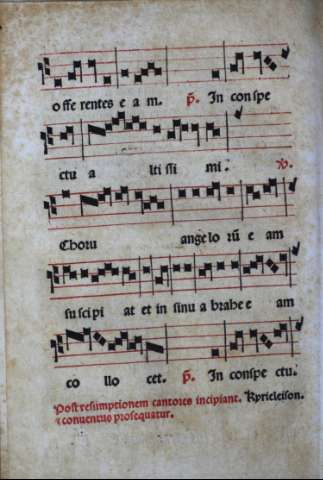 offe rentes e a m. p̄. In conspe
ctu a ltissi mi. ꝟ.
Choru angelo rū e am
suscipi at et in sinu abrahe e am
co llo cet. p̄. In conspe ctu.
Post resumptionem cantores incipiant. Kyrieleison.
⁊ conuentus prosequatur.